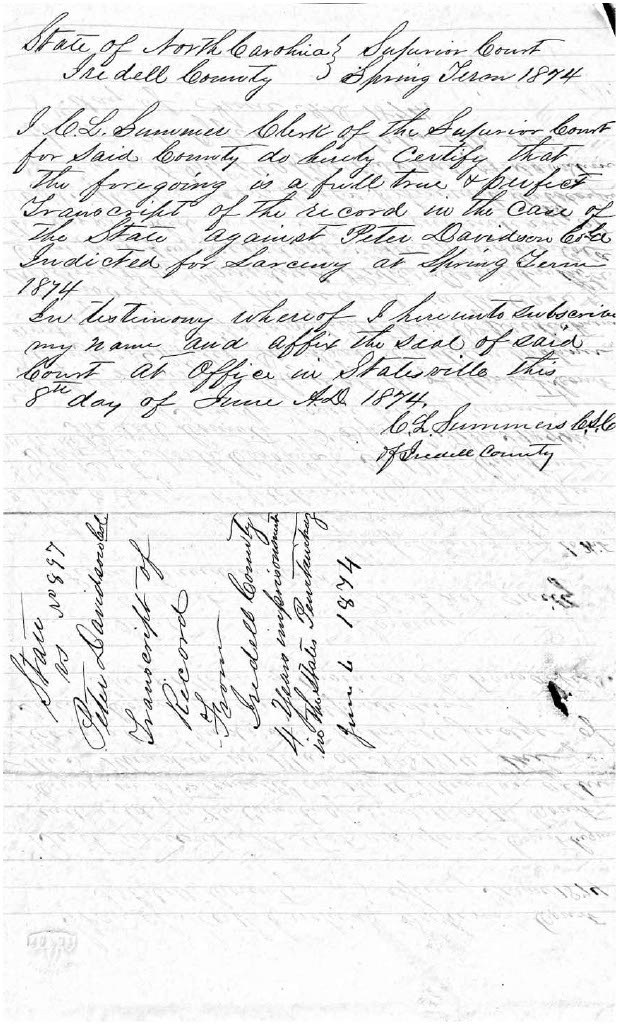 State of North Carolina } Superior Court
Iredell County } Spring Term 1874
I C. L. Summer Clerk of the Superior Court
for Said County do hereby Certify that
the foregoing is a full true & perfect
Transcript of the record in the Case of
the State against Peter Davidson Cold
Indicted for Larceny at Spring Term
1874
In testimony whereof I hereunto subscribe
my name and affix the seal of said
Court at Office in Statesville this
8th day of June A.D. 1874.
C L Summers C.S.C
of Iredell County
State
vs No 897
Peter Davidson Col
Transcript of
Record
From
Iredell County
4 Years imprisonment
in the States Penitentiary
June 6 1874